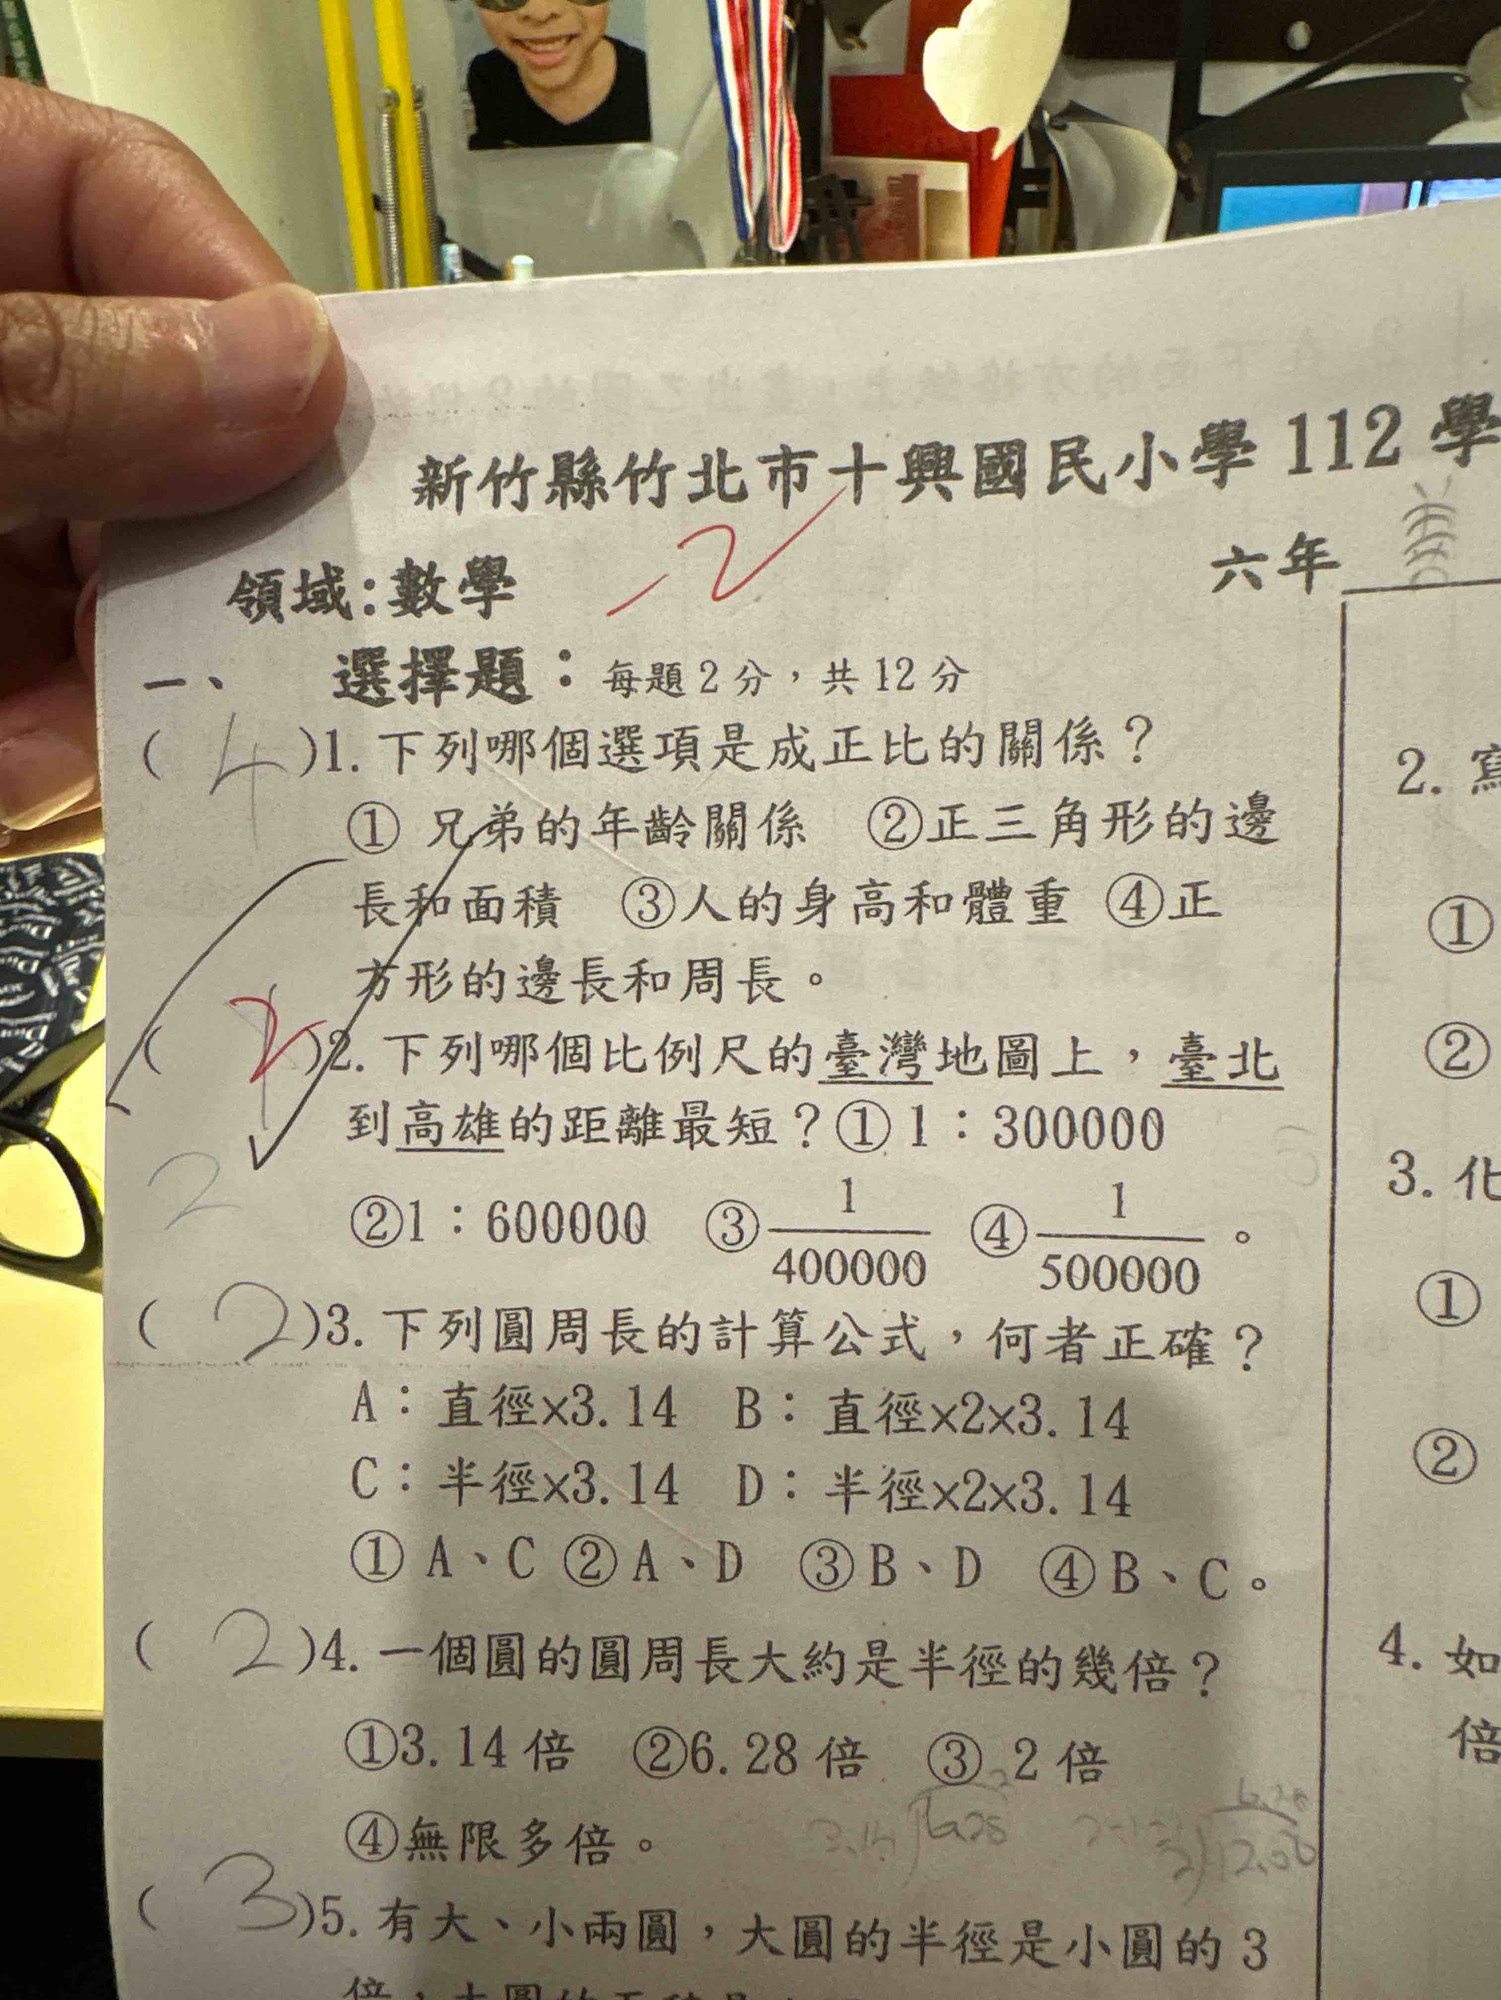 新竹縣竹北市十興國民小學112學
-2
領域:數學
六年
一、 選擇題：每題2分，共12分
( 4 )1.下列哪個選項是成正比的關係？
① 兄弟的年齡關係 ②正三角形的邊
長和面積 ③人的身高和體重 ④正
方形的邊長和周長。
( 2 )2.下列哪個比例尺的臺灣地圖上，臺北
到高雄的距離最短？①1：300000
2
②1：600000 ③1/400000 ④1/500000。
( 2 )3.下列圓周長的計算公式，何者正確？
A：直徑×3.14 B：直徑×2×3.14
C：半徑×3.14 D：半徑×2×3.14
① A、C ② A、D ③ B、D ④ B、C。
( 2 )4.一個圓的圓周長大約是半徑的幾倍？
①3.14倍 ②6.28倍 ③ 2倍
④無限多倍。
3.14 6.28
( 3 )5.有大、小兩圓，大圓的半徑是小圓的3
2. 寫
①
②
3. 化
①
②
4. 如
倍